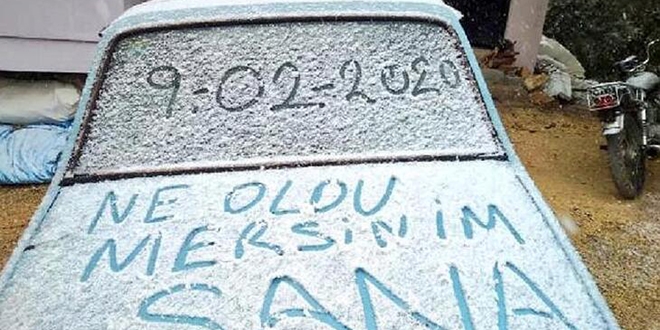 9-02-2020
NE OLDU
MERSiNiM
SANA